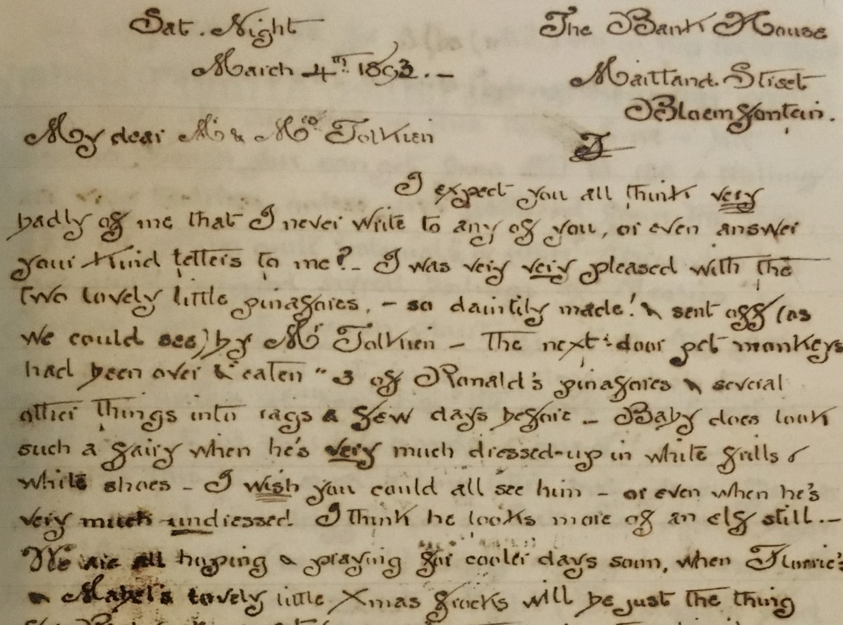 Sat. Night
The Bank House
March 4th 1893. —
Maitland. Street
Bloemfontein.
My dear Mr & Mrs Tolkien
I expect you all think very
badly of me that I never write to any of you, or even answer
your kind letters to me? - I was very very pleased with the
two lovely little pinafores, - so daintily made! & sent off (as
we could see) by Mr Tolkien - The next-door pet monkeys
had been over & eaten " 3 of Ronald's pinafores & several
other things into rags a few days before - Baby does look
such a fairy when he's very much dressed-up in white frills &
white shoes - I wish you could all see him - or even when he's
very much undressed I think he looks more of an elf still. -
We are all hoping & praying for cooler days soon, when Florrie's
& Mabel's lovely little Xmas frocks will be just the thing